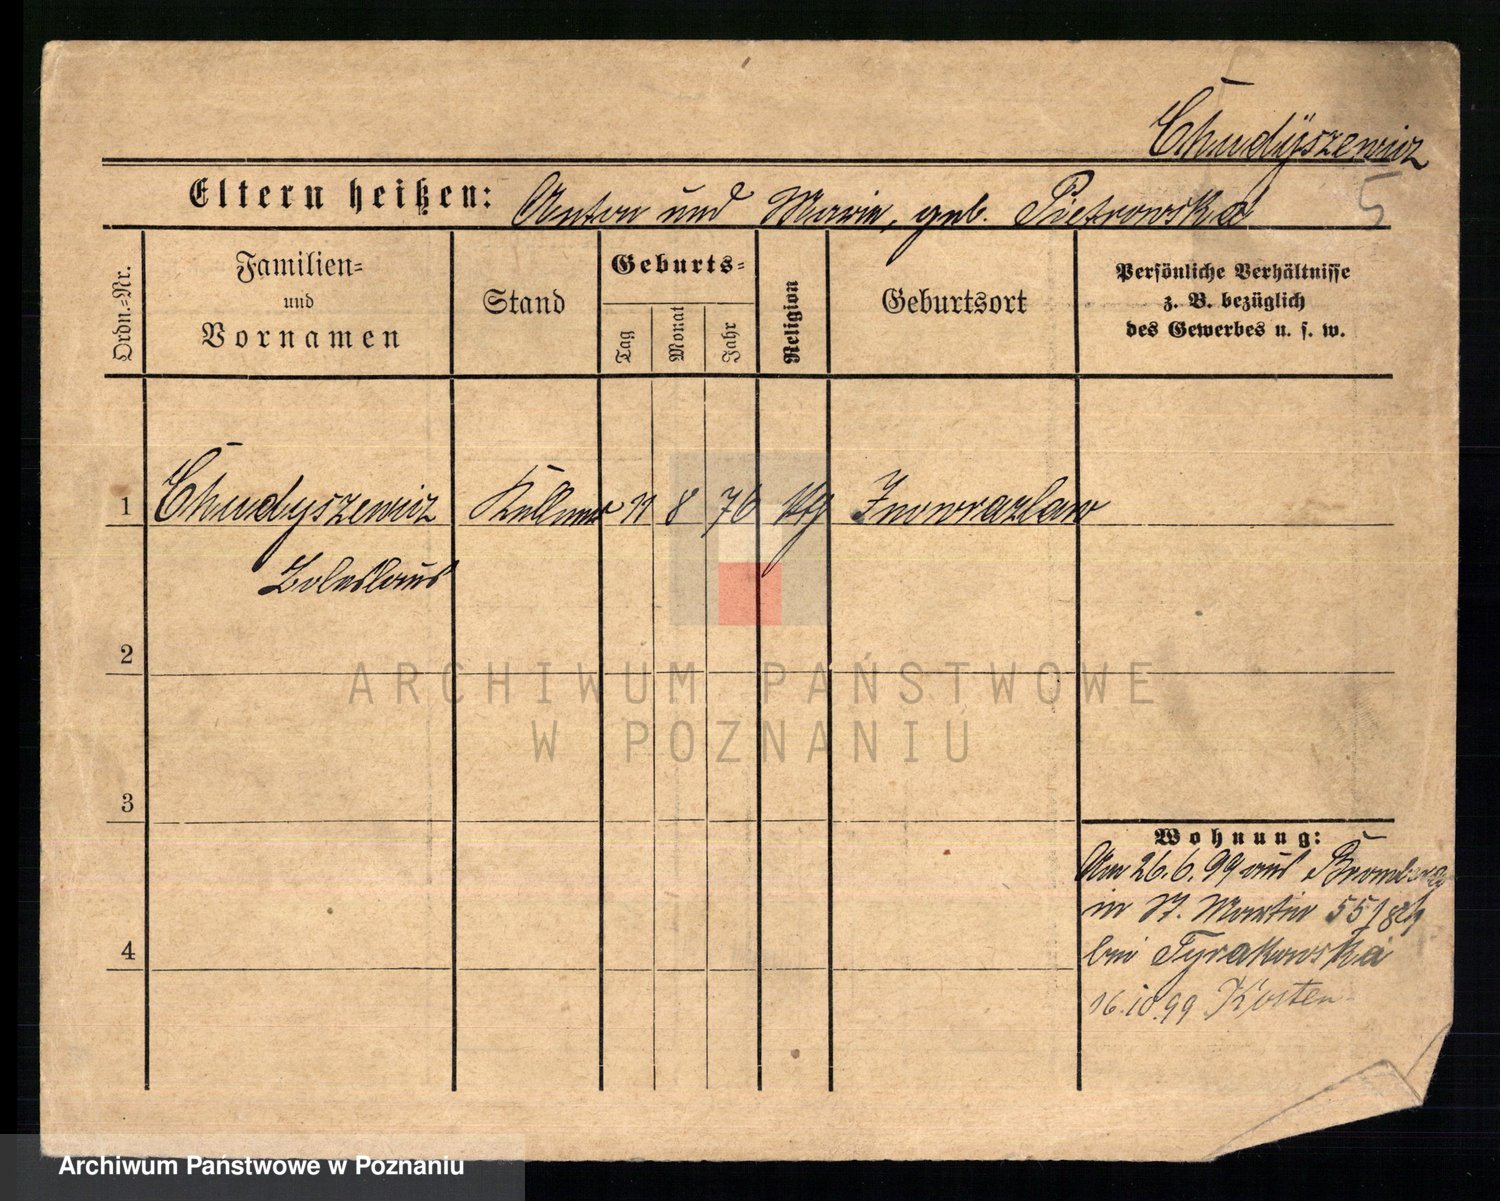 Chudÿszewicz
Eltern heißen: Anton und Marie, geb. Pietrowska
5
Ordn.=Nr.
Familien=
und
Vornamen
Stand
Geburts=
Tag
Monat
Jahr
Religion
Geburtsort
Persönliche Verhältnisse
z. B. bezüglich
des Gewerbes u. s. w.
1 Chudyszewicz Kellner 11 8 76 Inowrazlaw
Boleslaus
2
ARCHIWUM PAŃSTWOWE
W POZNANIU
3
Wohnung:
Am 26.6.99 aus Bromberg
in St. Martin 55
bei Tyrakowska
4
16.10.99 Kosten
Archiwum Państwowe w Poznaniu